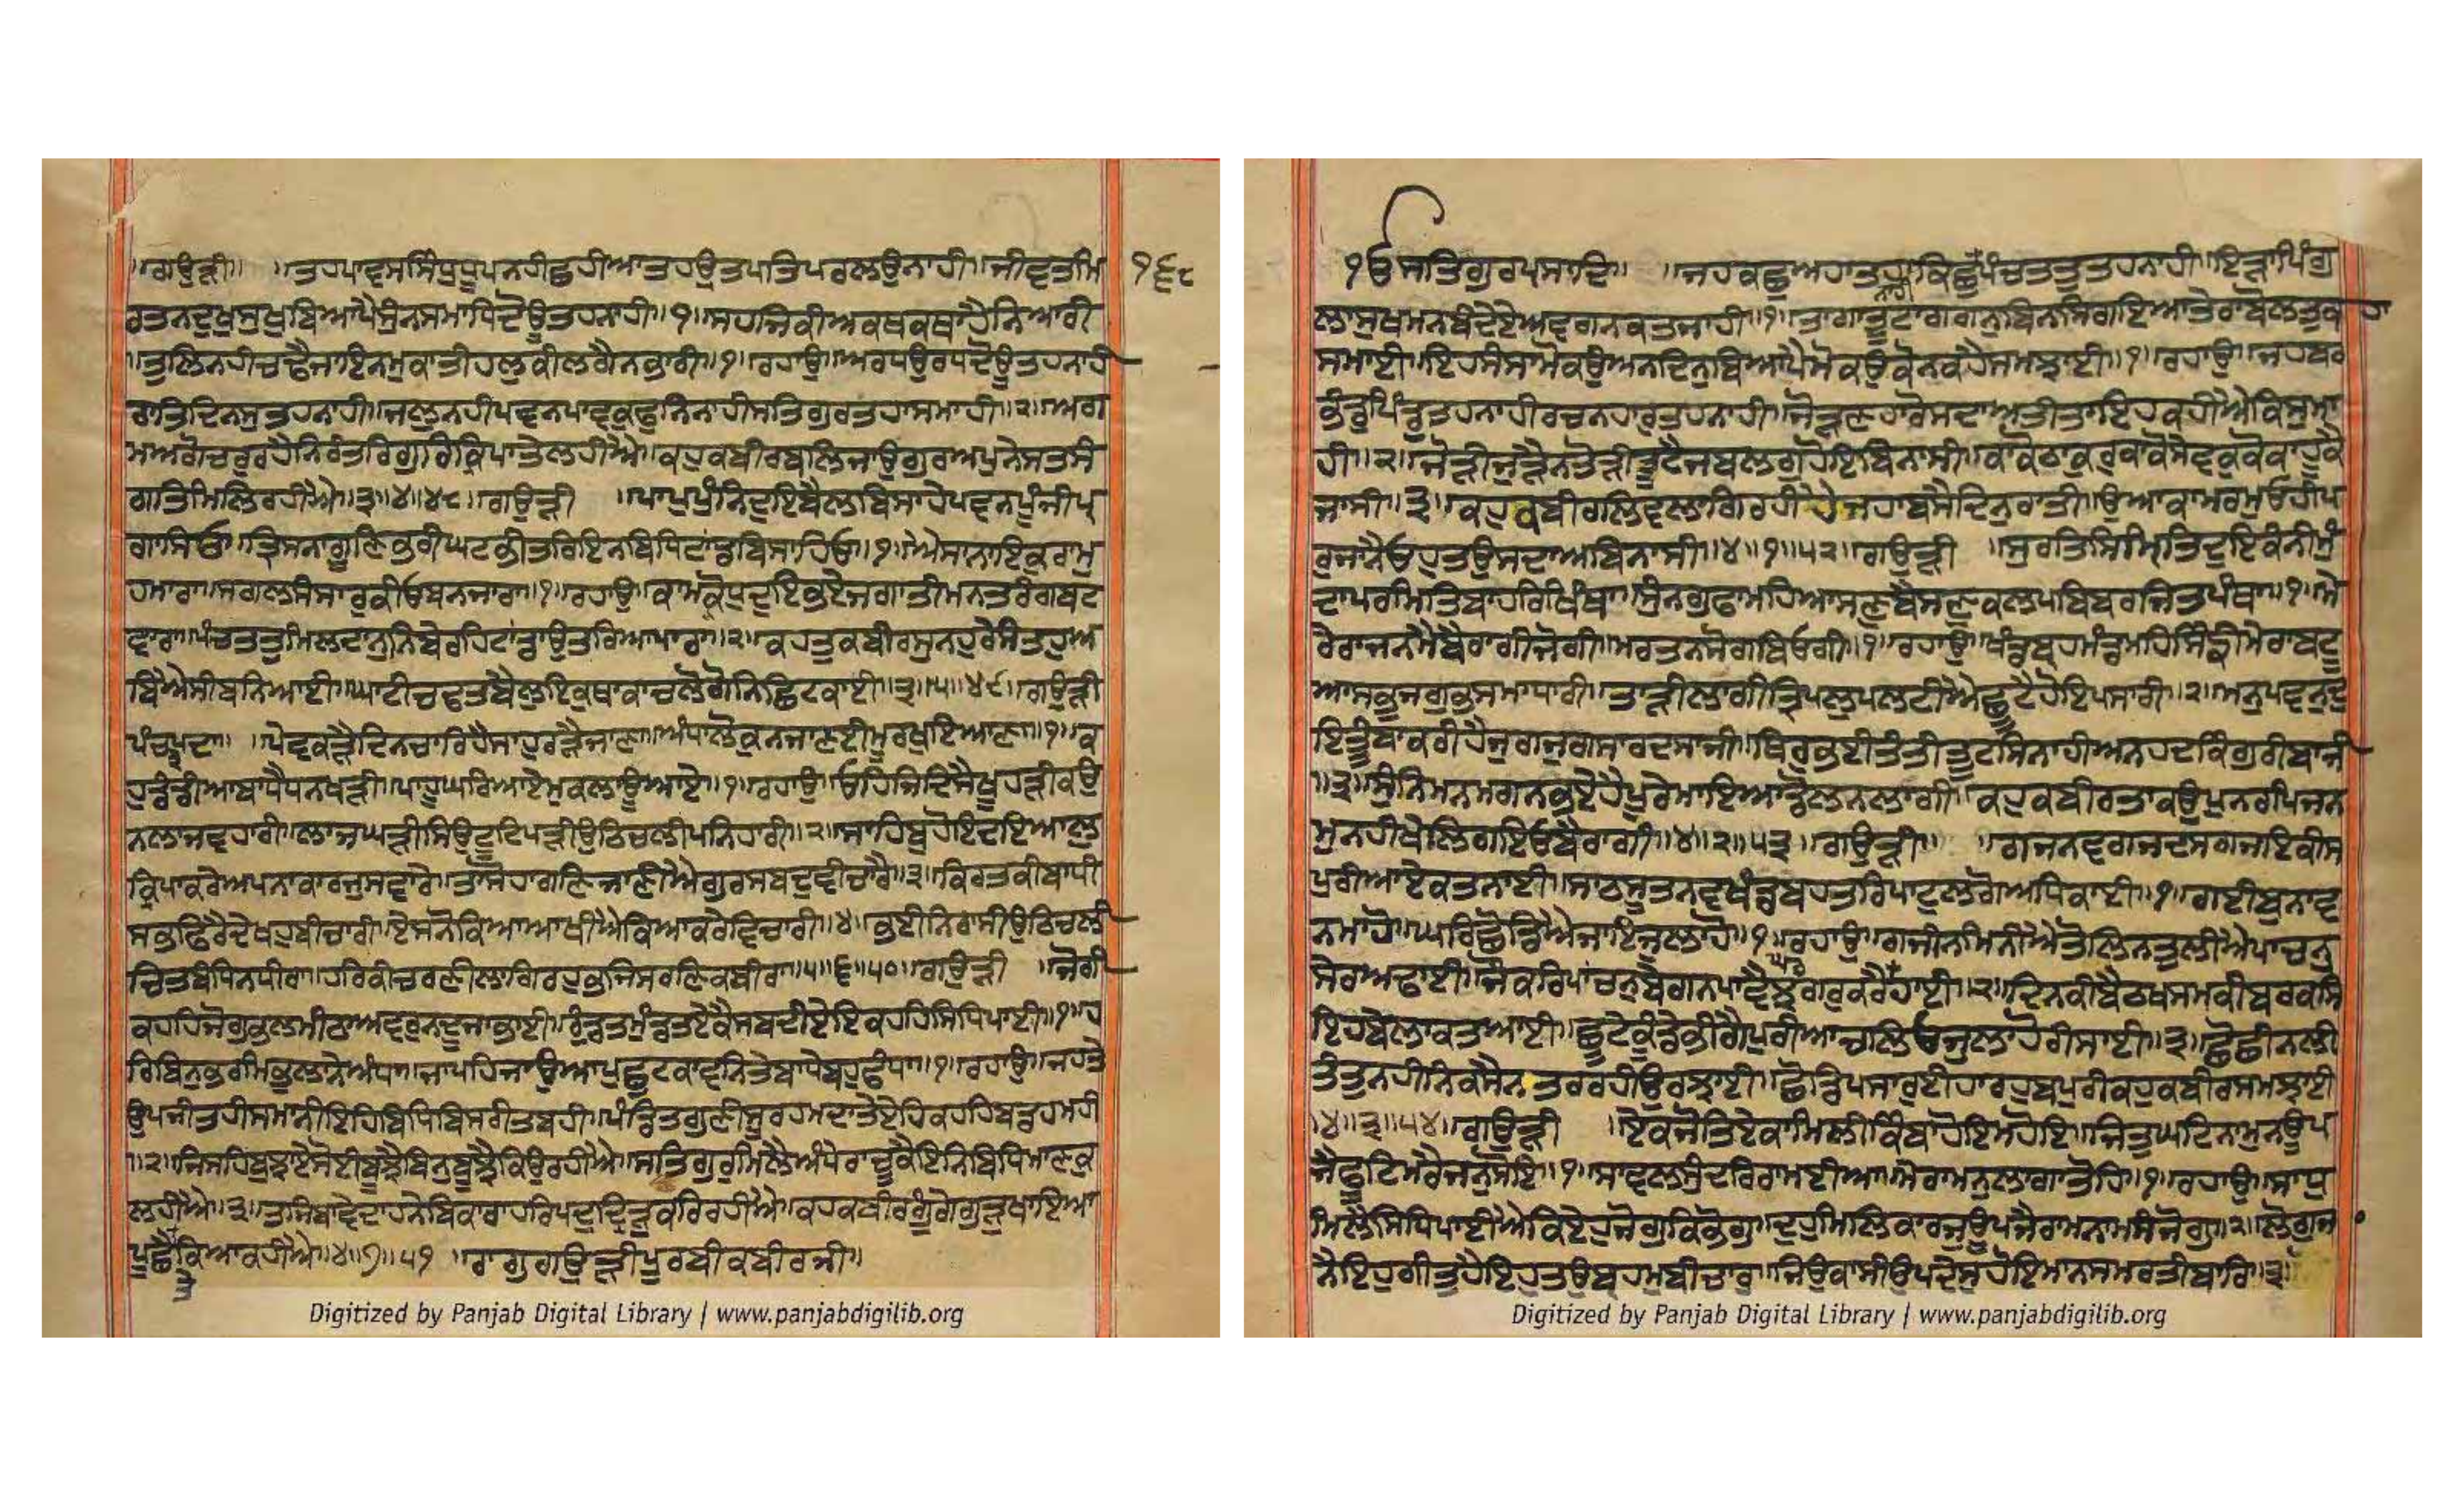 ॥ਗਉੜੀ॥ ॥ਤਹਪਾਵਸਸਿੰਧੁਧੂਪਨਹੀਛਹੀਆਤਹਉਤਪਤਿਪਰਲਉਨਾਹੀ॥ਜੀਵਤਮਿ
੧੬੮
ਰਤਨਦੁਖੁਸੁਖੁਬਿਆਪੈਸੁੰਨਸਮਾਧਿਦੋਊਤਹਨਾਹੀ॥੧॥ਸਹਜਕੀਅਕਥਕਥਾਹੈਨਿਆਰੀ
॥ਤੁਲਿਨਹੀਚਢੈਜਾਇਨਮੁਕਾਤੀਹਲੁਕੀਲਗੈਨਭਾਰੀ॥੧॥ਰਹਾਉ॥ਅਰਧਉਰਧਦੋਊਤਹਨਾਹੀ
ਰਾਤਿਦਿਨਸੁਤਹਨਾਹੀ॥ਜਲੁਨਹੀਪਵਨਪਾਵਕੁਫੁਨਿਨਾਹੀਸਤਿਗੁਰਤਹਾਸਮਾਹੀ॥੨॥ਅਗ
ਮਅਗੋਚਰੁਰਹੈਨਿਰੰਤਰਿਗੁਰਕਿਰਪਾਤੇਲਹੀਐ॥ਕਹੁਕਬੀਰਬਲਿਜਾਉਗੁਰਅਪੁਨੇਸਤਸੰ
ਗਤਿਮਿਲਿਰਹੀਐ॥੩॥੪॥੪੮॥ਗਉੜੀ ॥ਪਾਪੁਪੁੰਨਿਦੁਇਬੈਲਬਿਸਾਹੇਪਵਨੁਪੂੰਜੀਪ੍ਰ
ਗਾਸਿਓ॥ਤ੍ਰਿਸਨਾਗੂਣਿਭਰੀਘਟਭੀਤਰਿਇਨਬਿਧਿਟਾਂਡਬਿਸਾਹਿਓ॥੧॥ਐਸਾਨਾਇਕੁਰਾਮੁ
ਹਮਾਰਾ॥ਸਗਲਸੰਸਾਰੁਕੀਓਬਨਜਾਰਾ॥੧॥ਰਹਾਉ॥ਕਾਮੁਕ੍ਰੋਧੁਦੁਇਭਏਜਗਾਤੀਮਨਤਰੰਗਬਟ
ਵਾਰਾ॥ਪੰਚਤਤੁਮਿਲਦਾਨੁਨਿਬੇਰਹਿਟਾਂਡਾਉਤਰਿਓਪਾਰਾ॥੨॥ਕਹਤੁਕਬੀਰਸੁਨਹੁਰੇਸੰਤਹੁਅ
ਬਐਸੀਬਨਿਆਈ॥ਘਾਟੀਚਢਤਬੈਲੁਇਕੁਥਾਕਾਚਲੋਗੋਨਿਛਿਟਕਾਈ॥੩॥੫॥੪੯॥ਗਉੜੀ
ਪੰਚਪਦਾ॥ ॥ਪੇਵਕੜੈਦਿਨਚਾਰਿਹੈਸਾਹੁਰੜੈਜਾਣਾ॥ਅੰਧਾਲੋਕੁਨਜਾਣਈਮੂਰਖੁਇਆਣਾ॥੧॥ਕ
ਹੁਡੰਡੀਆਬਾਧੈਧਨਖੜੀ॥ਪਾਹੂਘਰਿਆਏਮੁਕਲਾਊਆਏ॥੧॥ਰਹਾਉ॥ਓਹਿਜਿਦਿਸੈਖੂਹੜੀਕਉ
ਨਲਾਜੁਵਹਾਰੀ॥ਲਾਜੁਘੜੀਸਿਉਤੂਟਿਪੜੀਉਠਿਚਲੀਪਨਿਹਾਰੀ॥੨॥ਸਾਹਿਬੁਹੋਇਦਇਆਲੁ
ਕ੍ਰਿਪਾਕਰੇਅਪਨਾਕਾਰਜੁਸਵਾਰੇ॥ਤਾਸੋਹਾਗਣਿਜਾਣੀਐਗੁਰਸਬਦੁਬੀਚਾਰੈ॥੩॥ਕਿਰਤਕੀਬਾਂਧੀ
ਸਭਫਿਰੈਦੇਖਹੁਬੀਚਾਰੀ॥ਏਸਨੋਕਿਆਆਖੀਐਕਿਆਕਰੇਵਿਚਾਰੀ॥੪॥ਭਈਨਿਰਾਸੀਉਠਿਚਲੀ
ਚਿਤਬੰਧਿਨਧੀਰਾ॥ਹਰਿਕੀਚਰਣੀਲਾਗਿਰਹੁਭਜਿਸਰਣਿਕਬੀਰਾ॥੫॥੬॥੫੦॥ਗਉੜੀ ॥ਜੋਗੀ
ਕਹਹਿਜੋਗੁਭਲਮੀਠਾਅਵਰੁਨਦੂਜਾਭਾਈ॥ਰੁੰਡਤਮੁੰਡਤਏਕੈਸਬਦੀਏਇਕਹਹਿਸਿਧਿਪਾਈ॥੧॥ਹ
ਰਿਬਿਨੁਭਰਮਿਭੁਲਾਨੇਅੰਧਾ॥ਜਾਪਹਿਜਾਉਆਪੁਛੁਟਕਾਵਨਿਤੇਬਾਧੇਬਹੁਫੰਧਾ॥੧॥ਰਹਾਉ॥ਜਹਤੇ
ਉਪਜੀਤਹੀਸਮਾਨੀਇਹਿਬਿਧਿਬਿਸਰੀਤਬਹੀ॥ਪੰਡਿਤਗੁਣੀਸੂਰਹਮਦਾਤੇਏਹਿਕਹਹਿਬਡਹਮਹੀ
॥੨॥ਜਿਸਹਿਬੁਝਾਏਸੋਈਬੂਝੈਬਿਨੁਬੂਝੈਕਿਉਰਹੀਐ॥ਸਤਿਗੁਰੁਮਿਲੈਅੰਧੇਰਾਚੂਕੈਇਨਿਬਿਧਿਮਾਣਕੁ
ਲਹੀਐ॥੩॥ਤਜਿਬਾਵੇਦਾਹਨੇਬਿਕਾਰਾਹਰਿਪਦੁਦ੍ਰਿੜੁਕਰਿਰਹੀਐ॥ਕਹਕਬੀਰਗੂੰਗੇਗੁੜੁਖਾਇਆ
ਪੂਛੈਕਿਆਕਹੀਐ॥੪॥੭॥੫੧ ॥ਰਾਗੁਗਉੜੀਪੂਰਬੀਕਬੀਰਜੀ॥
Digitized by Panjab Digital Library | www.panjabdigilib.org
ੴਸਤਿਗੁਰਪ੍ਰਸਾਦਿ॥ ॥ਜਹਕਛੁਅਹਾਤਹਾਕਿਛੁਪੰਚਤਤੁਤਹਨਾਹੀ॥ਇੜਾਪਿੰਗੁ
ਨਾਹੀ
ਲਾਸੁਖਮਨਬੰਦੇਏਅਵਗਨਕਤਜਾਹੀ॥੧॥ਤਾਗਾਤੂਟਾਗਗਨੁਬਿਨਸਿਗਇਆਤੇਰਾਬੋਲਤੁਕ ਹਾ
ਸਮਾਈ॥ਇਹਸੰਸਾਮੋਕਉਅਨਦਿਨੁਬਿਆਪੈਮੋਕਉਕੋਨਕਹੈਸਮਝਾਈ॥੧॥ਰਹਾਉ॥ਜਹਬਰ
ਭੰਡੁਪਿੰਡੁਤਹਨਾਹੀਰਚਨਹਾਰੁਤਹਨਾਹੀ॥ਜੋੜਣਹਾਰੋਸਦਾਅਤੀਤਾਇਹਕਹੀਐਕਿਸੁਮਾ
ਹੀ॥੨॥ਜੋੜੀਜੁੜੈਨਤੋੜੀਤੂਟੈਜਬਲਗੁਹੋਇਬਿਨਾਸੀ॥ਕਾਕੋਠਾਕੁਰੁਕਾਕੋਸੇਵਕੁਕੋਕਾਹੂਕੈ
ਜਾਸੀ॥੩॥ਕਹੁਕਬੀਰਲਿਵਲਾਗਿਰਹੀਹੈਜਹਾਬਸੈਦਿਨੁਰਾਤੀ॥ਉਆਕਾਮਰਮੁਓਹੀਪ
ਰੁਜਾਨੈਓਹੁਤਉਸਦਾਅਬਿਨਾਸੀ॥੪॥੧॥੫੨॥ਗਉੜੀ ॥ਸੁਰਤਿਸਿਮ੍ਰਿਤਿਦੁਇਕੰਨੀਮੁੰ
ਦਾਪਰਮਿਤਿਬਾਹਰਿਖਿੰਥਾ॥ਸੁੰਨਗੁਫਾਮਹਿਆਸਣੁਬੈਸਣੁਕਲਪਬਿਬਰਜਿਤਪੰਥਾ॥੧॥ਮੇ
ਰੇਰਾਜਨਮੈਬੈਰਾਗੀਜੋਗੀ॥ਮਰਤਨਸੋਗਬਿਓਗੀ॥੧॥ਰਹਾਉ॥ਖੰਡਬ੍ਰਹਮੰਡਮਹਿਸਿੰਙੀਮੇਰਾਬਟੂ
ਆਸਭੁਜਗੁਭਸਮਾਧਾਰੀ॥ਤਾੜੀਲਾਗੀਤ੍ਰਿਪਲੁਪਲਟੀਐਛੂਟੈਹੋਇਪਸਾਰੀ॥੨॥ਮਨੁਪਵਨੁਦੁ
ਇਤੂੰਬਾਕਰੀਹੈਜੁਗਜੁਗਸਾਰਦਸਾਜੀ॥ਥਿਰੁਭਈਤੰਤੀਤੂਟਸਿਨਾਹੀਅਨਹਦਕਿੰਗੁਰੀਬਾਜੀ
॥੩॥ਸੁਨਿਮਨਮਗਨਭਏਹੈਪੂਰੇਮਾਇਆਡੋਲਨਲਾਗੀ॥ਕਹੁਕਬੀਰਤਾਕਉਪੁਨਰਪਿਜਨ
ਮੁਨਹੀਖੇਲਿਗਇਓਬੈਰਾਗੀ॥੪॥੨॥੫੩॥ਗਉੜੀ॥ ॥ਗਜਨਵਗਜਦਸਗਜਇਕੀਸ
ਪੁਰੀਆਏਕਤਨਾਈ॥ਸਾਠਸੂਤਨਵਖੰਡਬਹਤਰਿਪਾਟੁਲਗੋਅਧਿਕਾਈ॥੧॥ਗਈਬੁਨਾਵ
ਨਮਾਹੋ॥ਘਰਿਛੋਡਿਐਜਾਇਜੁਲਾਹੋ॥੧॥ਰਹਾਉ॥ਗਜੀਨਮਿਨੀਐਤੋਲਿਨਤੁਲੀਐਪਾਚਨੁ
ਸੇਰਅਢਾਈ॥ਜੌਕਰਿਪਾਚਨੁਬੇਗਨਪਾਵੈਝਗਰੁਕਰੈਘਰਹਾਈ॥੨॥ਦਿਨਕੀਬੈਠਖਸਮਕੀਬਰਕਸ
ਇਹਬੇਲਾਕਤਆਈ॥ਛੂਟੇਕੂੰਡੇਭੀਗੈਪੁਰੀਆਚਲਿਓਜੁਲਾਹੋਰੀਸਾਈ॥੩॥ਛੋਛੀਨਲੀ
ਤੰਤੁਨਹੀਨਿਕਸੈਨਤਰਰਹੀਉਰਝਾਈ॥ਛੋਡਿਪਸਾਰੁਈਹਾਰਹੁਬਪੁਰੀਕਹੁਕਬੀਰਸਮਝਾਈ
॥੪॥੩॥੫੪॥ਗਉੜੀ ॥ਏਕਜੋਤਿਏਕਾਮਿਲੀਕਿੰਬਾਹੋਇਮਹੋਇ॥ਜਿਤੁਘਟਿਨਾਮੁਨਊਪ
ਜੈਫੂਟਿਮਰੈਜਨੁਸੋਇ॥੧॥ਸਾਵਲਸੁੰਦਰਰਾਮਈਆ॥ਮੇਰਾਮਨੁਲਾਗਾਤੋਹਿ॥੧॥ਰਹਾਉ॥ਸਾਧੁ
ਮਿਲੈਸਿਧਿਪਾਈਐਕਿਏਹੁਜੋਗੁਕਿਭੋਗੁ॥ਦੁਹੁਮਿਲਿਕਾਰਜੁਊਪਜੈਰਾਮਨਾਮਸੰਜੋਗੁ॥੨॥ਲੋਗੁਜਾ
ਨੈਇਹੁਗੀਤੁਹੈਇਹੁਤਉਬ੍ਰਹਮਬੀਚਾਰ॥ਜਿਉਕਾਸੀਉਪਦੇਸੁਹੋਇਮਾਨਸਮਰਤੀਬਾਰ॥੩॥
Digitized by Panjab Digital Library | www.panjabdigilib.org